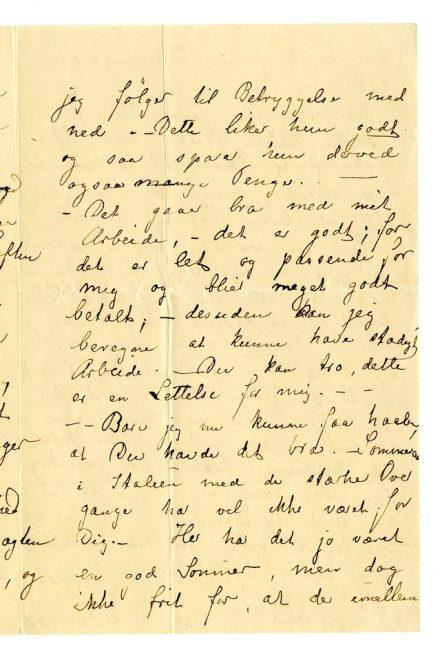 jeg følger til Betryggelse med
ned - - Dette liker hun godt
og saa spare hun derved
ogsaa mange Penge. —
- Det gaar bra med mit
Arbeide, - det er godt; for
det er let og passende for
mig og blir meget godt
betalt; - desuden kan jeg
beregne at kunne have stadigt
Arbeide. - Du kan tro, dette
er en Lettelse for mig. - -
- - Bare jeg nu kunne faa haabe,
at Du havde det bra. - Sommeren
i Italien med de stærke Over
gange har vel ikke været for
Dig. - Her har det jo været
en god Sommer, men dog
ikke frit for, at der imellem
ogten
, og